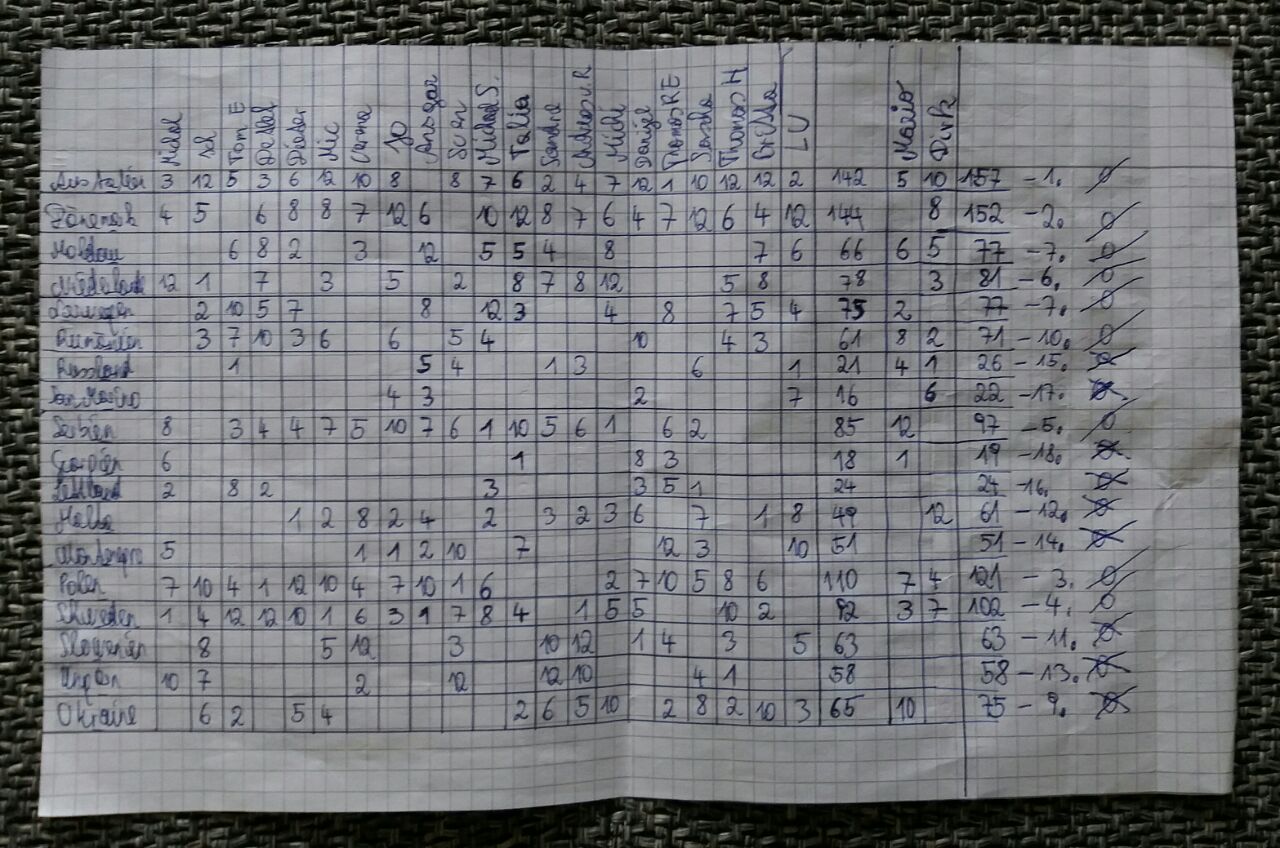 Michael Tom E Detlef Dieter Mic Carma Jo Ansgar Sven Michael S. Talia Sandra Andreas v.R Michi Daniel Thomas RE Sascha Thomas H LU Mario Dirk
Australien 3 12 5 3 6 12 10 8 8 7 6 2 4 7 12 1 10 12 12 2 142 5 10 157 - 1.
Dänemark 4 5 6 8 8 7 12 6 10 12 8 7 6 4 7 12 6 4 12 144 8 152 - 2.
Moldau 6 8 2 3 12 5 5 4 8 7 6 66 6 5 77 - 7.
Niederlande 12 1 7 3 5 2 8 7 8 12 5 8 78 3 81 - 6.
Norwegen 2 10 5 7 8 12 3 4 8 7 5 4 75 2 77 - 7.
Rumänien 3 7 10 3 6 6 5 4 10 4 3 61 8 2 71 - 10.
Russland 1 5 4 1 3 6 1 21 4 1 26 - 15.
San Marino 4 3 2 7 16 6 22 - 17.
Serbien 8 3 4 4 7 5 10 7 6 1 10 5 6 1 6 2 85 12 97 - 5.
6 1 8 3 18 1 19 - 18.
Lettland 2 8 2 3 3 5 1 24 24 - 16.
Malta 1 2 8 2 4 2 3 2 3 6 7 1 8 49 12 61 - 12.
Montenegro 5 1 1 2 10 7 12 3 10 51 51 - 14.
Polen 7 10 4 1 12 10 4 7 10 1 6 2 7 10 5 8 6 110 7 4 121 - 3.
Schweden 1 4 12 12 10 1 6 3 1 7 8 4 1 5 5 10 2 92 3 7 102 - 4.
Slowenien 8 5 12 3 10 12 1 4 3 5 63 63 - 11.
Ungarn 10 7 2 12 12 10 4 1 58 58 - 13.
Ukraine 6 2 5 4 2 6 5 10 2 8 2 10 3 65 10 75 - 9.